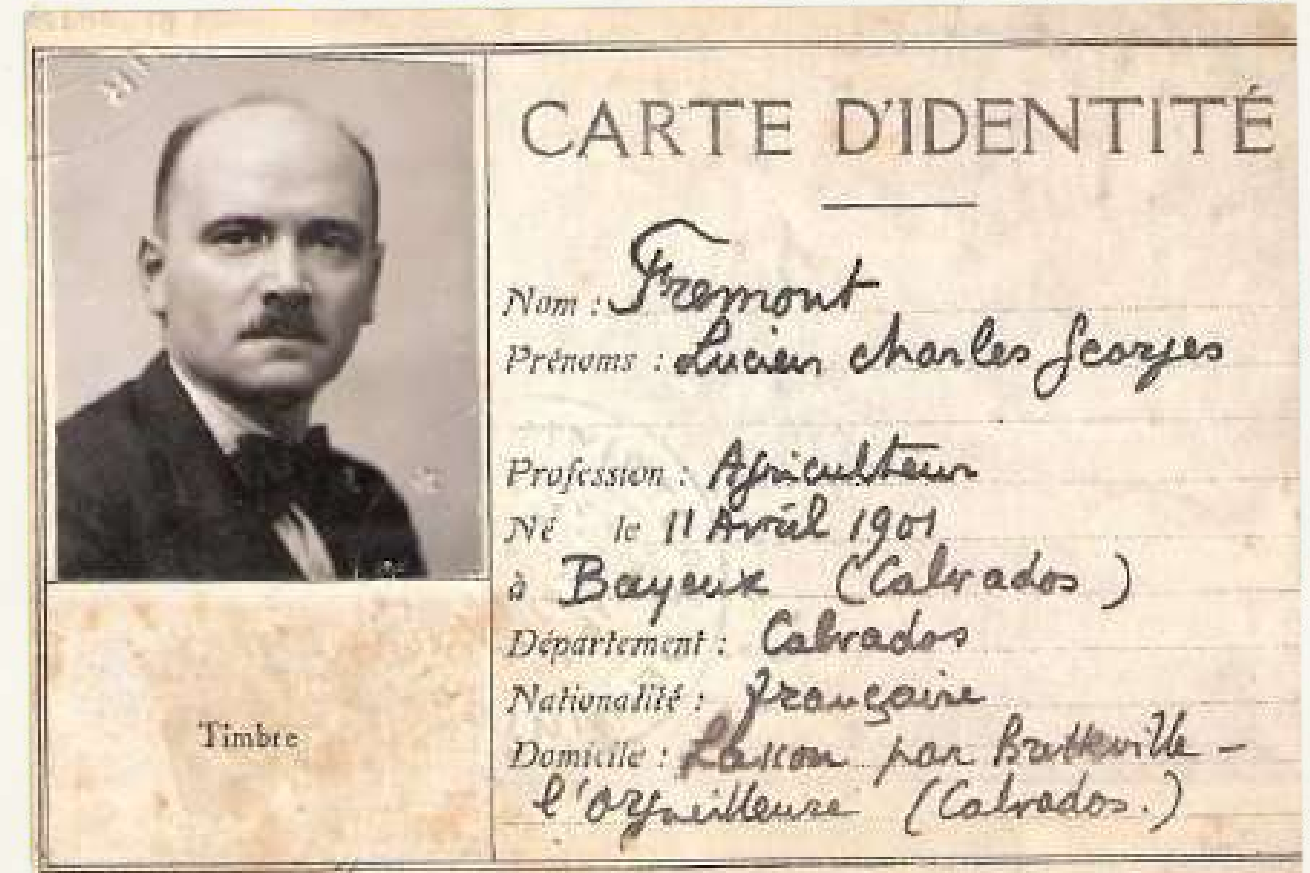 CARTE D'IDENTITÉ
Nom : Fremont
Prénoms : Lucien Charles Georges
Profession : Agriculteur
Né le 11 Avril 1901
à Bayeux (Calvados)
Département : Calvados
Nationalité : Française
Domicile : Lasson par Bretteville-
l'orgueilleuse (Calvados.)
Timbre